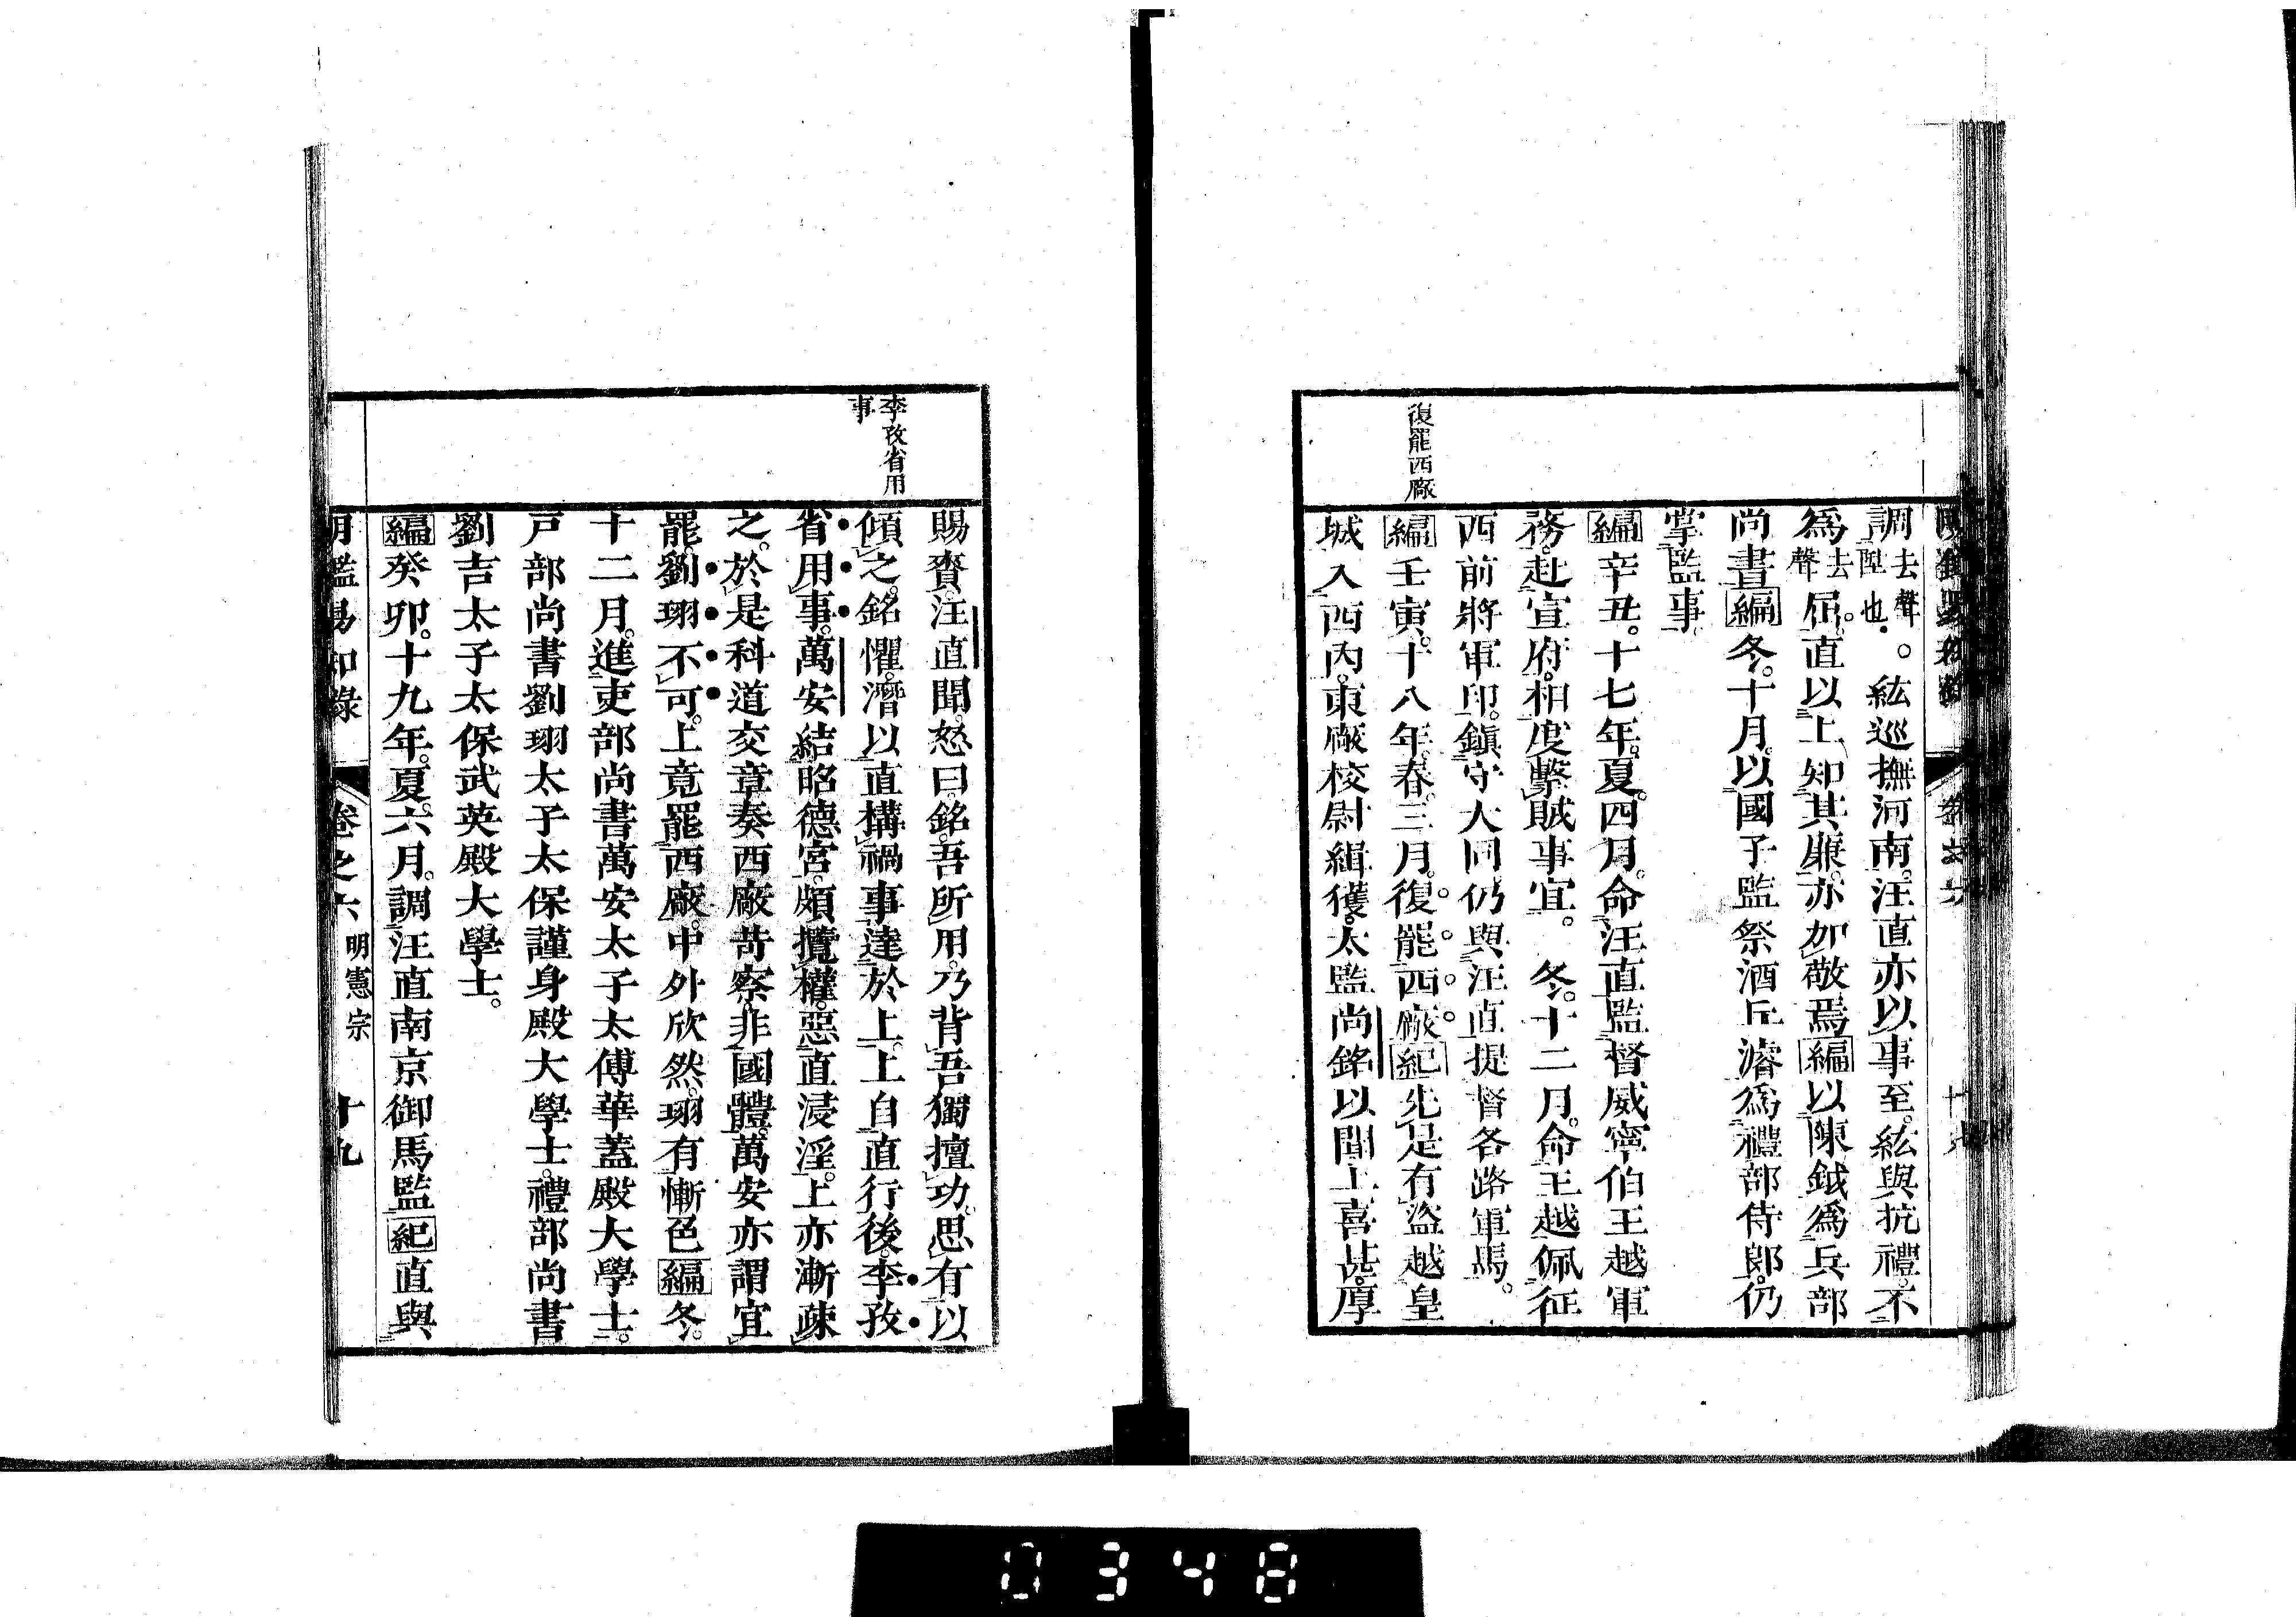 復罷西廠
調去聲陞也。紘巡撫河南。汪直亦以事至。紘與抗禮。不
為去聲屈。直以上知其廉。亦加敬焉編以陳鉞為兵部
尚書編冬。十月。以國子監祭酒丘濬為禮部侍郎。仍
掌監事。
編辛丑。十七年。夏。四月。命汪直監督威寧伯王越軍
務。赴宣府。相度擊賊事宜。冬。十二月。命王越佩征
西前將軍印。鎮守大同。仍與汪直提督各路軍馬。
編壬寅。十八年。春。三月。復罷西廠紀先是有盜越皇
城入西內。東廠校尉緝獲。太監尚銘以聞。上喜甚。厚
李孜省用
事
賜賚。汪直聞。怒曰。銘。吾所用。乃背吾獨擅功。思有以
傾之。銘懼。濳以直搆禍事達於上。上自直行後。李孜
省用事。萬安結昭德宮。頗攬權。惡直浸淫。上亦漸疎
之。於是科道交章奏西廠苛察。非國體。萬安亦謂宜
罷。劉珝不可。上竟罷西廠。中外欣然。珝有慚色編冬。
十二月。進吏部尚書萬安太子太傅華蓋殿大學士。
戶部尚書劉珝太子太保謹身殿大學士。禮部尚書
劉吉太子太保武英殿大學士。
編癸卯。十九年。夏。六月。調汪直南京御馬監紀直與
明鑑易知錄 卷之六 明憲宗 十九
0348